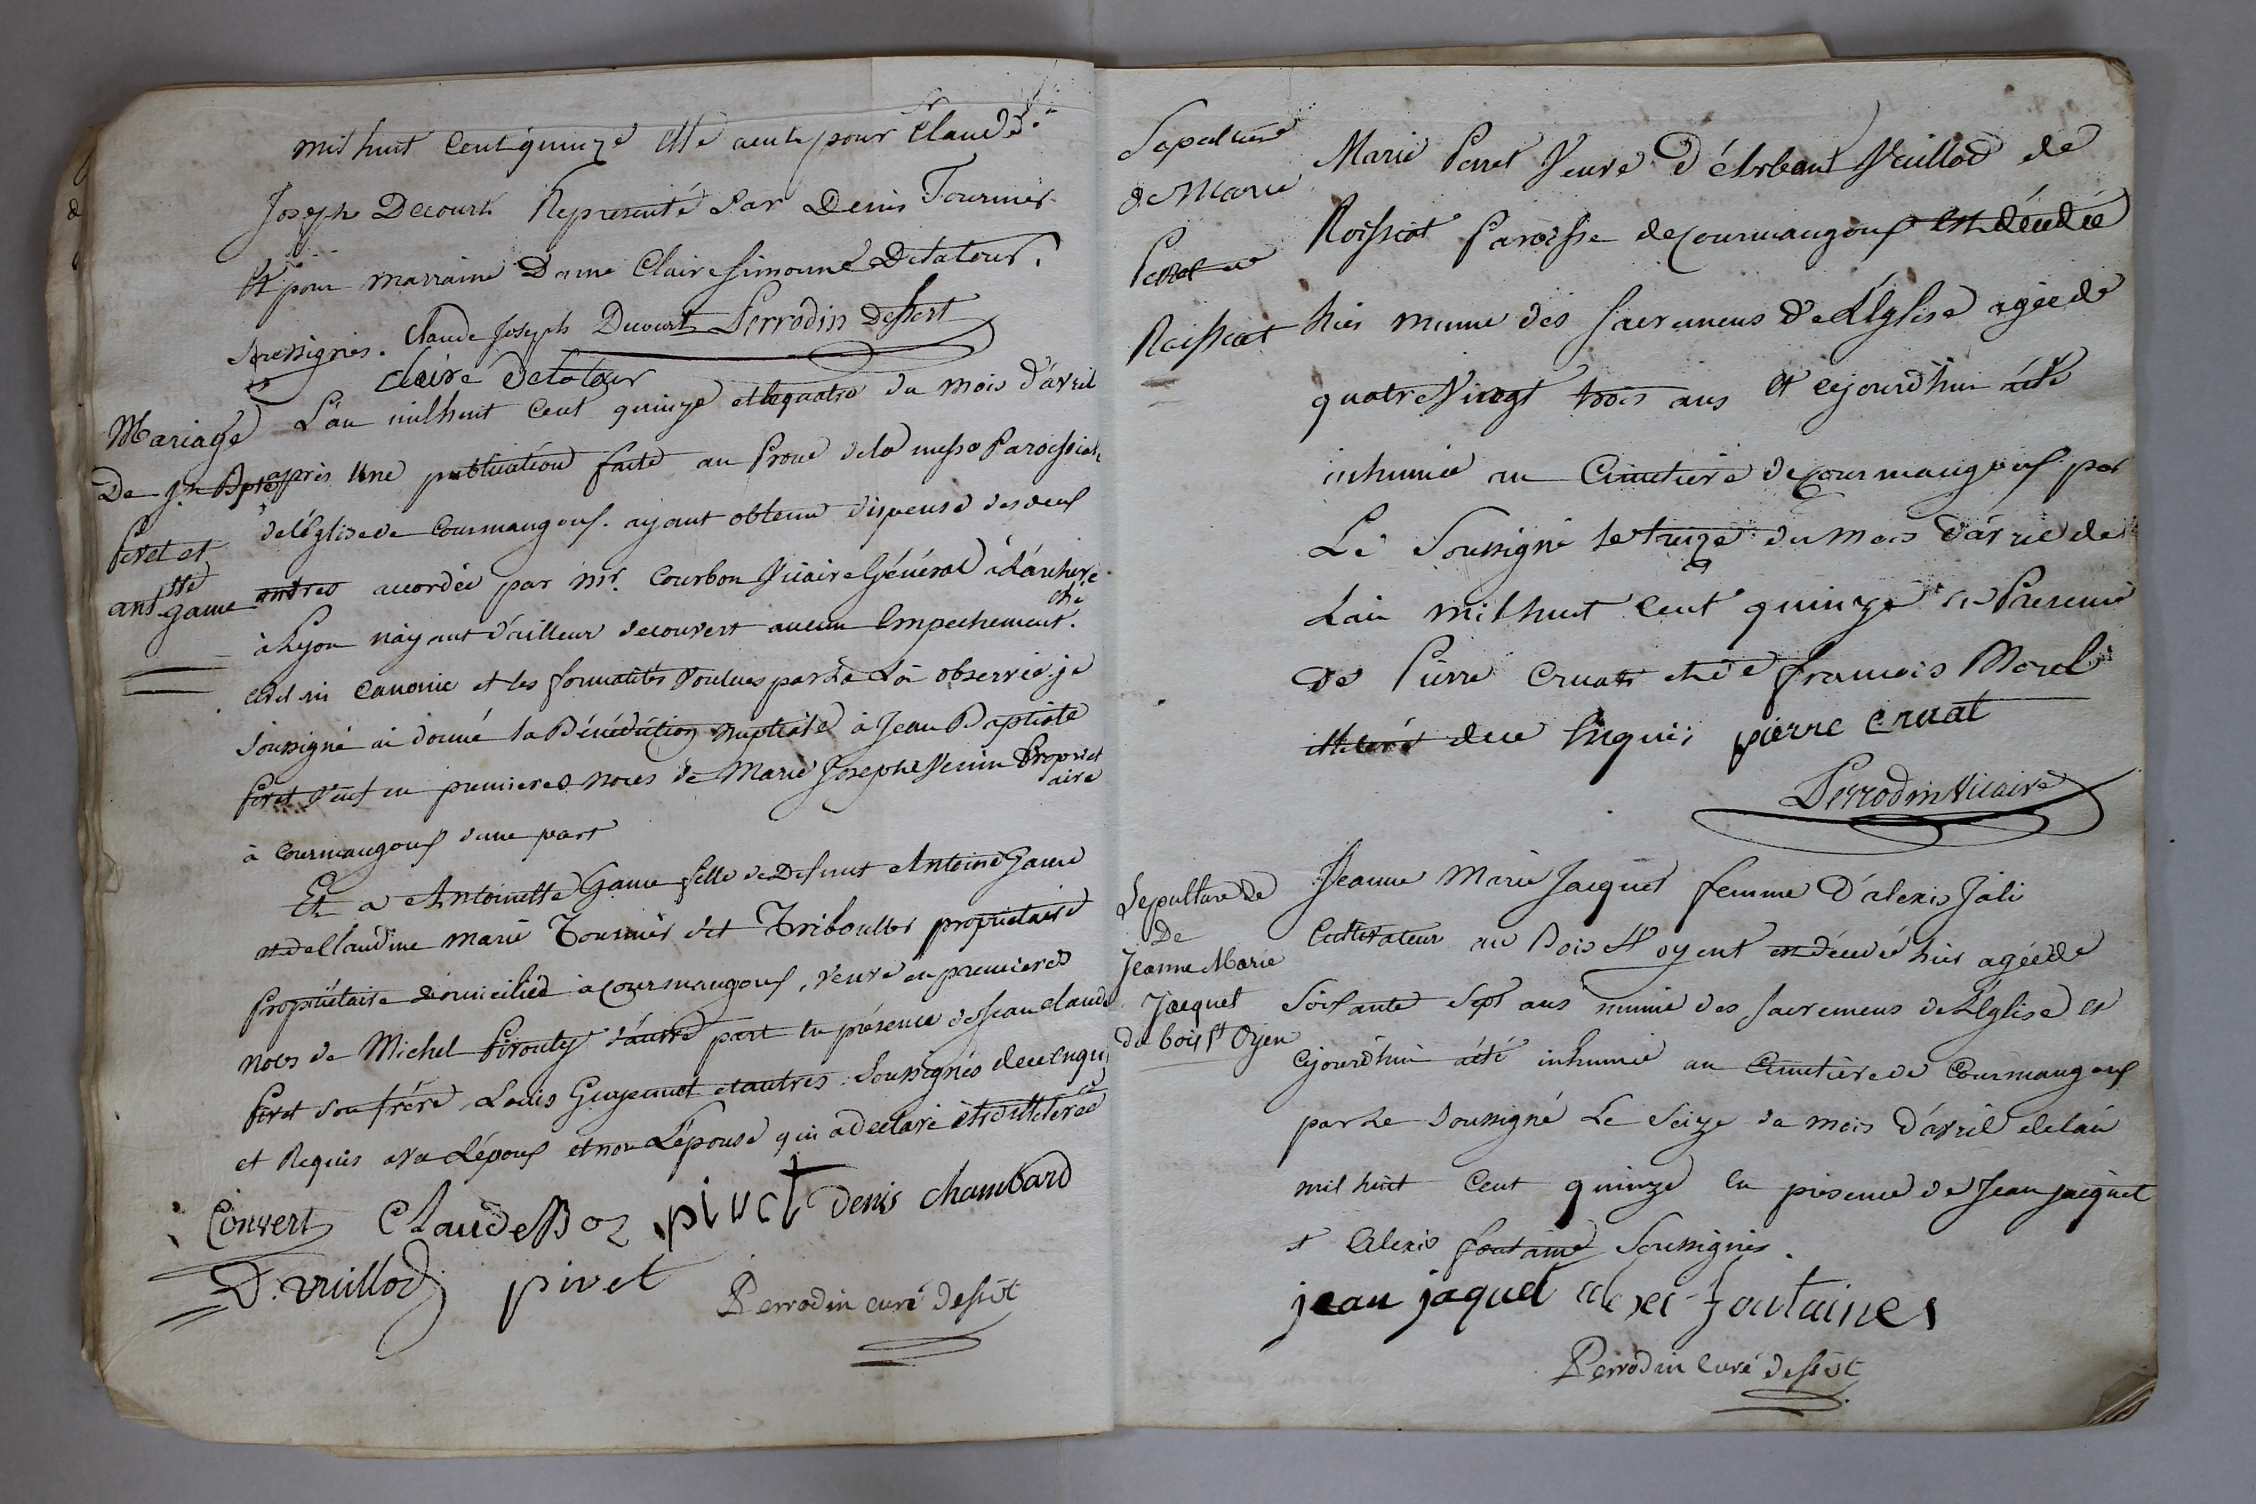 mil huit cent quinze elle a eut pour Claude
Joseph Decourt Representé Par Denis Tournier
Et pour marraine Dame Claire Simonne Delatour
soussignés. Claude Joseph Ducourt Perrodin Dessert
Claire Delatour
Mariage
De Jn Bpte
Piret et
antte
game
L'an mil huit cent quinze et le quatre du mois d'avril
après Une publication faite au Prone de la messe Paroissiale
de l'Eglise de Courmangoux. ayant obtenu dispense des deux
autres accordée par Mr. Courbon Vicaire Général à l'árchevé
ché
à Lyon n'ayant d'ailleur decouvert aucun Empechement.
civil ni Canonic et les formalités Voulues par La Loi observée je
soussigné ai donné la Bénédiction nuptiale à Jean Baptiste
Piret Veuf en premieres noces de Marie Josephe Venin Propriet
aire
à Courmangoux d'une part
Et a Antoinette Game fille de Defunt Antoine Game
et de Claudine Marie Tournier dit Triboullet propriétaire
Propriétaire domicilié à Courmangoux, veuve en premieres
noces de Michel Pirouty d'autre part En présence de Jean Claude
Piret son frére, Louis Guyennot et autres soussignés de ce Enquis
et Requis avec L'époux et non L'épouse qui a declaré étre illeterée
Convert Claude Boz pivet denis chambard
D. vuillod pivet Perrodin curé dessert
Sepulture
de Marie
Perret de
Roissiat
Marie Perret Veuve d'Anbeant Vuillod de
Roissiat Paroisse de Courmangoux est décédée
hier munie des Sacremens de L'Eglise agée de
quatre Vingt trois ans Et cejourd'hui a été
inhumée au Cimetiere de Courmangoux par
Le Soussigné le treize du mois d'avril de
L'an mil huit cent quinze en Presence
de Pierre Cruat et de francois Morel
illeteré de ce Enquis pierre cruat
Perrodin Vicaire
Sepulture de
De
Jeanne Marie
Jacquet
du bois st Oyen
Jeanne Marie Jacquet femme D'alexis Joli
Cultivateur au Bois St oyent est décédé hier agée de
Soixante Sept ans munie des Sacremens de L'Eglise et
Cejourd'hui a été inhumée au Cimetiere de Courmangoux
par Le Soussigné Le Seize du mois d'avril de l'an
mil huit Cent quinze En présence de Jean Jacquet
et Alexis fontaine Soussignés.
jean jaquet alexi fontaines
Perrodin Curé dessert